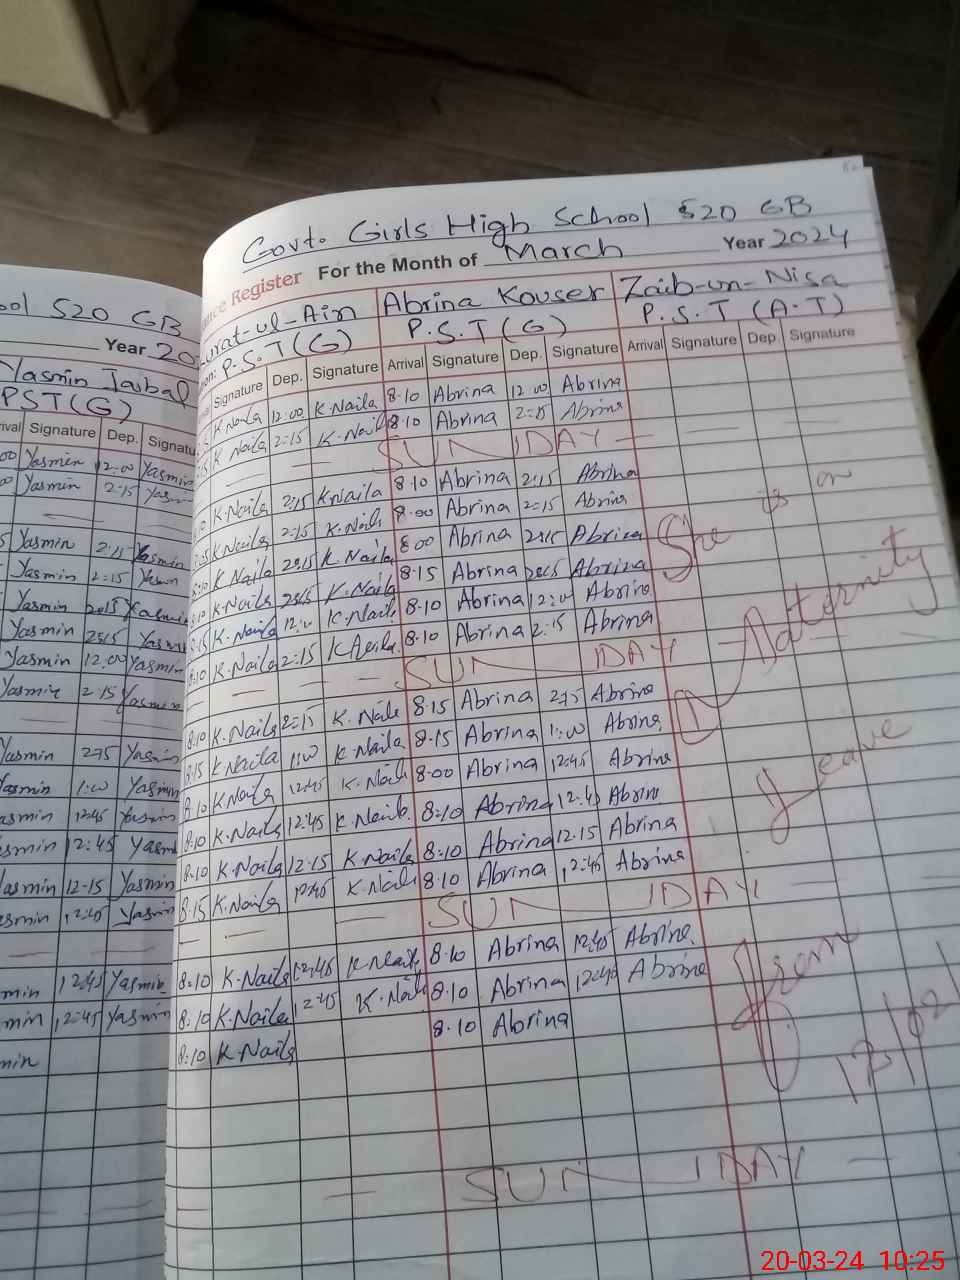 Govt. Girls High School 520 GB
nce Register For the Month of March Year 2024
urat-ul-Ain Abrina Kouser Zaib-un-Nisa
P.S.T (G) P.S.T (G) P.S.T (A.T)
Signature Dep. Signature Arrival Signature Dep. Signature Arrival Signature Dep. Signature
K.Naila 12:00 K.Naila 8.10 Abrina 12:00 Abrina
K.Naila 2:15 K.Naila 8.10 Abrina 2:15 Abrina
SUNDAY
K.Naila 2:15 K.Naila 8.10 Abrina 2:15 Abrina
K.Naila 2:15 K.Naila 8.00 Abrina 2:15 Abrina
K.Naila 2:15 K.Naila 8.00 Abrina 2:15 Abrina
K.Naila 2:15 K.Naila 8.15 Abrina 2:15 Abrina
K.Naila 12:00 K.Naila 8.10 Abrina 12:00 Abrina
8.10 K.Naila 2:15 K.Naila 8.10 Abrina 2:15 Abrina
SUNDAY
8.10 K.Naila 2:15 K.Naila 8.15 Abrina 2:15 Abrina
8.15 K.Naila 1:00 K.Naila 8.15 Abrina 1:00 Abrina
8.10 K.Naila 12:45 K.Naila 8.00 Abrina 12:45 Abrina
8.10 K.Naila 12:45 K.Naila 8.10 Abrina 12:45 Abrina
8.10 K.Naila 12.15 K.Naila 8.10 Abrina 12.15 Abrina
8.15 K.Naila 12:45 K.Naila 8.10 Abrina 12:45 Abrina
SUNDAY
8:10 K.Naila 12:45 K.Naila 8.10 Abrina 12:45 Abrina
8:10 K.Naila 12:45 K.Naila 8.10 Abrina 12:45 Abrina
8:10 K.Naila 8.10 Abrina
SUNDAY
She is on
Maternity
Leave
From
ool 520 GB
Year 20
Yasmin
PST (G)
ival Signature Dep. Signatu
00 Yasmin 12:00 Yasmin
Yasmin 2.15 Yasmin
Yasmin 2:15 Yasmin
Yasmin 2:15 Yasmin
Yasmin 2:15 Yasmin
Yasmin 2:15 Yasmin
Yasmin 12.00 Yasmin
Yasmin 2.15 Yasmin
Yasmin 2:15 Yasmin
asmin 1:00 Yasmin
asmin 12:45 Yasmin
smin 12:45 Yasm
asmin 12-15 Yasmin
smin 12:45 Yasmin
min 12:45 Yasmin
min 12:45 Yasmin
min
20-03-24 10:25